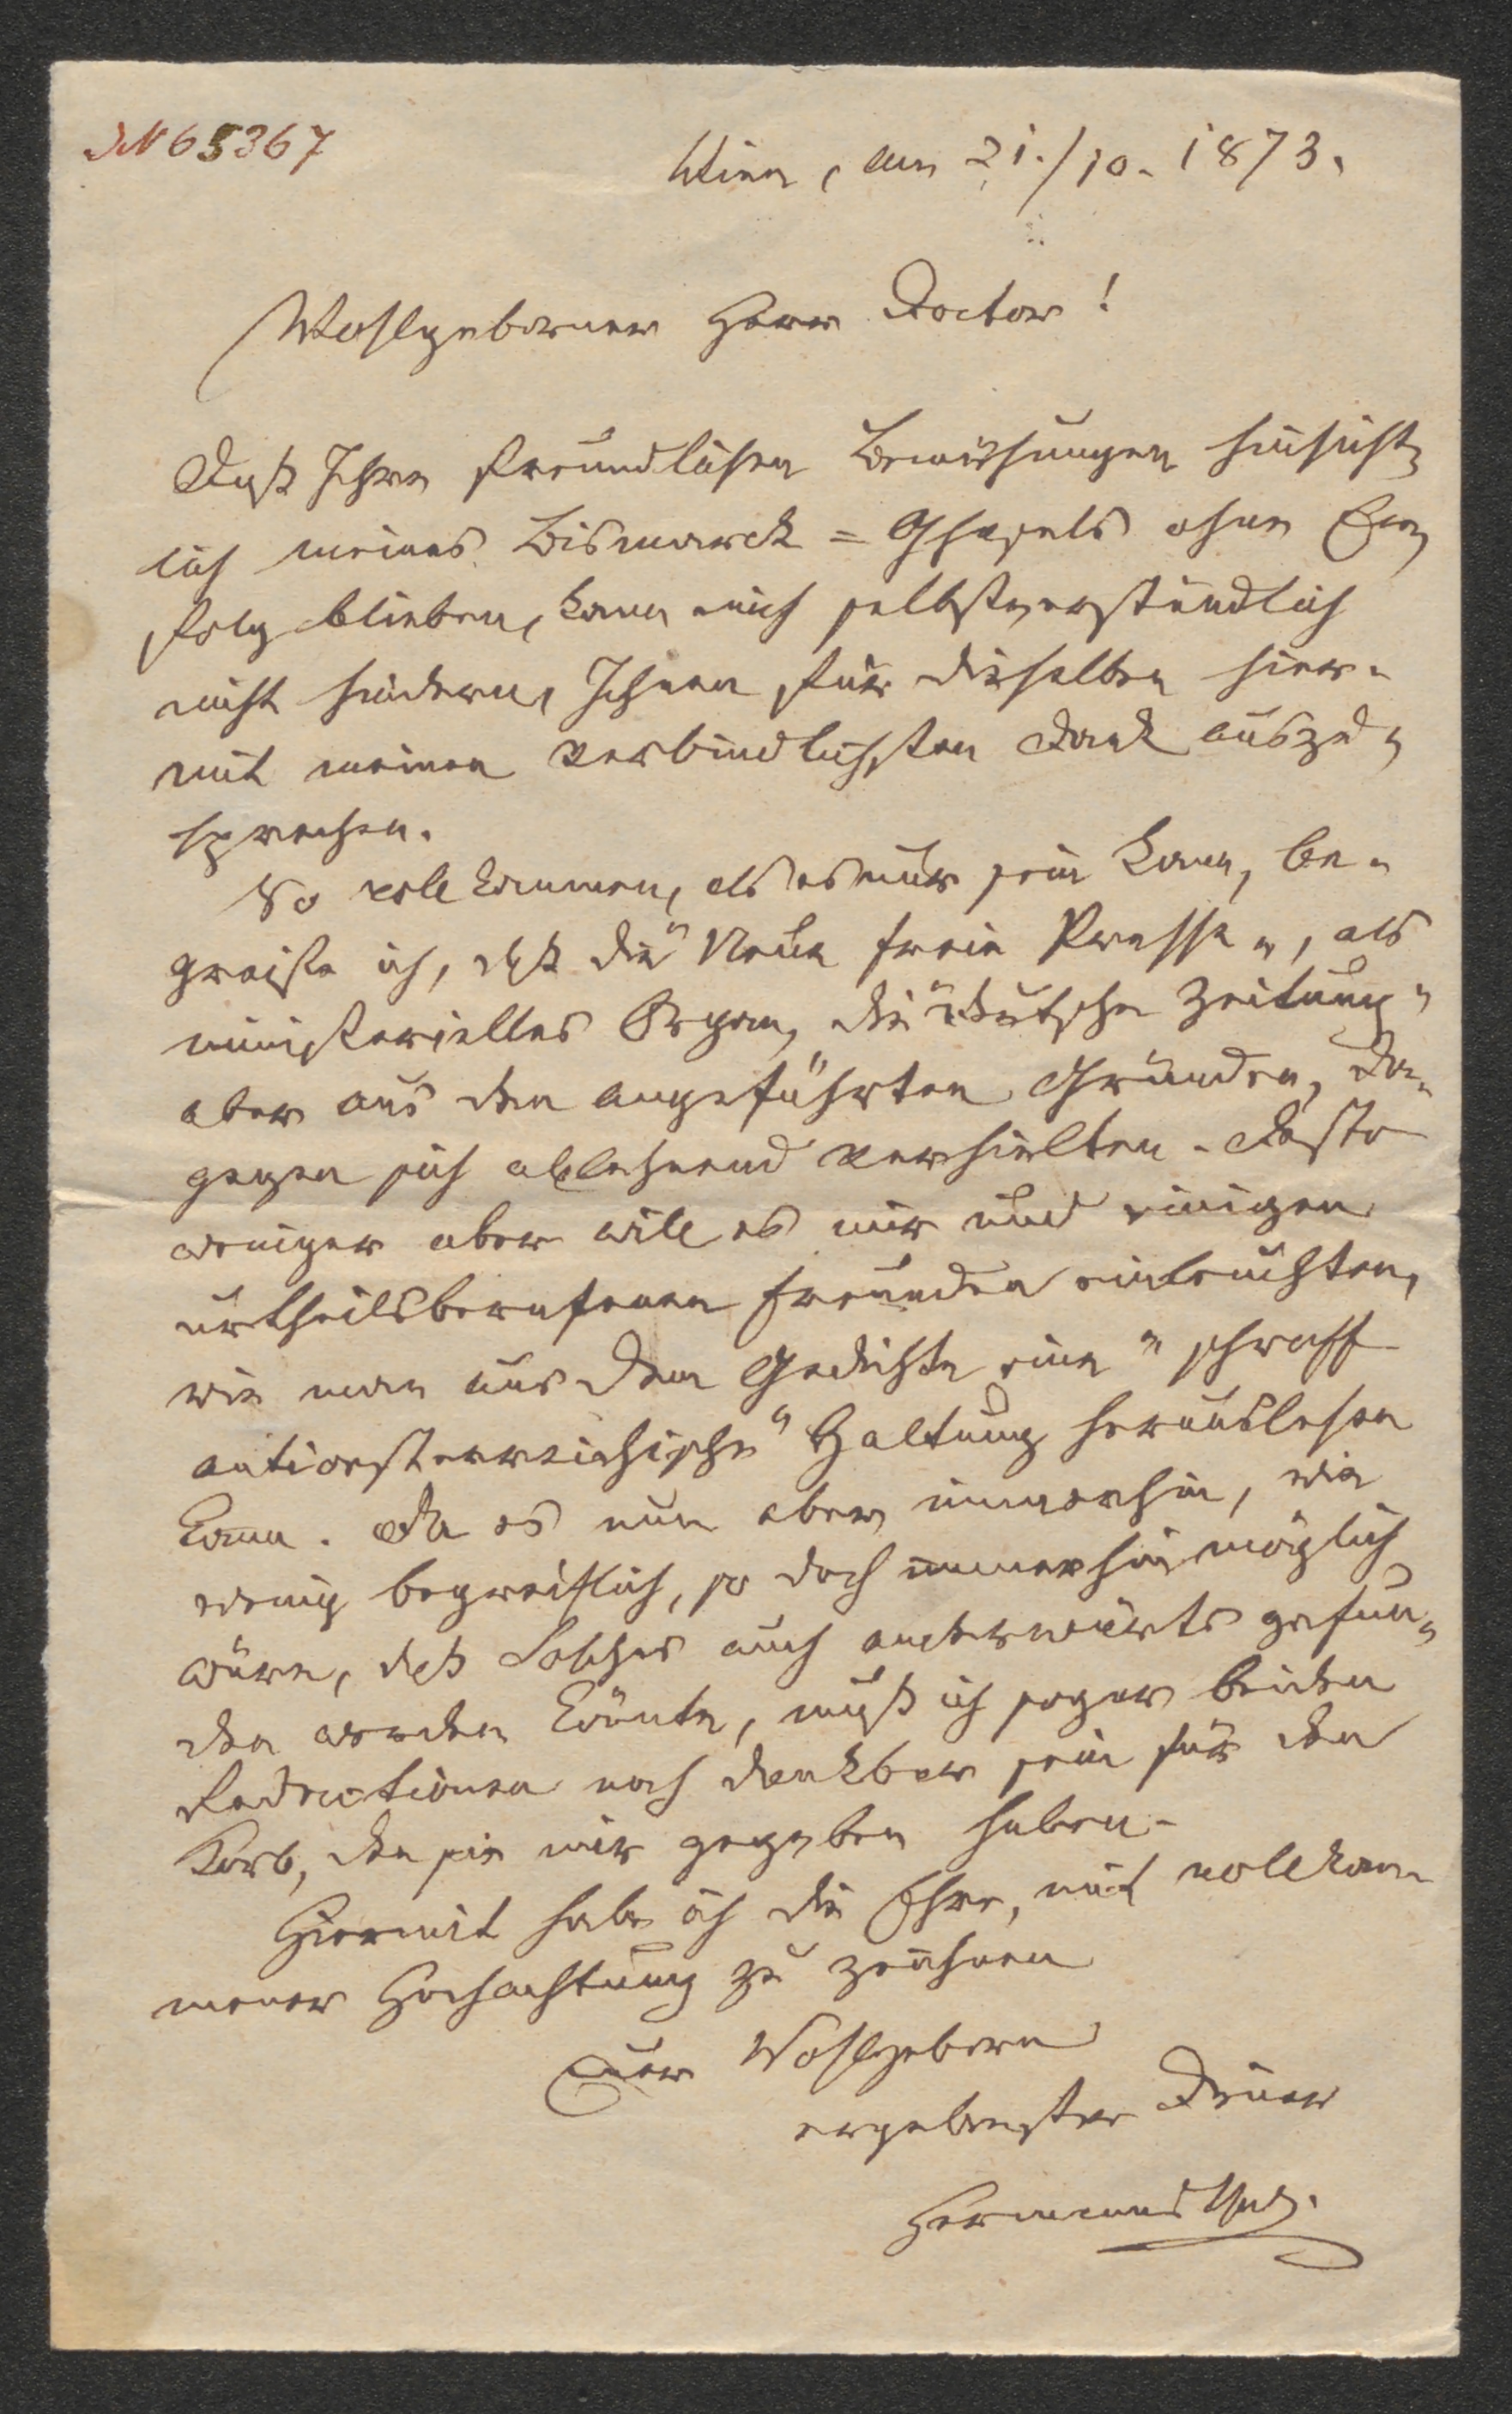 JN 65367
Wien, am 21./10. 1873.
Wohlgeborner Herr Doctor!
Daß Ihre freundlichen Bemühungen hinsicht-
lich meines Bismarck=Ghasels ohne Er-
folg blieben, kann mich selbstverständlich
nicht hindern, Ihnen für dieselben hier-
mit meinen verbindlichsten Dank auszu-
sprechen.
So vollkommen, als es nur sein kann, be-
greife ich, daß die "Neue freie Presse", als
ministerielles Organ, die "Deutsche Zeitung"
aber aus den angeführten Gründen, da-
gegen sich ablehnend verhielten. Desto
weniger aber will es mir und einigen
urtheilsberufenen Freunden einleuchten,
wie man aus dem Gedichte eine "schroff
antioesterreichische" Haltung herauslesen
kann. Da es nun aber immerhin, wie
wenig begreiflich, so doch immerhin möglich
wäre, daß Solches auch anderwärts gefun-
den werden könnte, muß ich sogar beiden
Redactionen noch dankbar sein für den
Korb, den sie mir gegeben haben.
Hiermit habe ich die Ehre, mit vollkom-
mener Hochachtung zu zeichnen
Euer Wohlgeboren
ergebenster Diener
Hermann